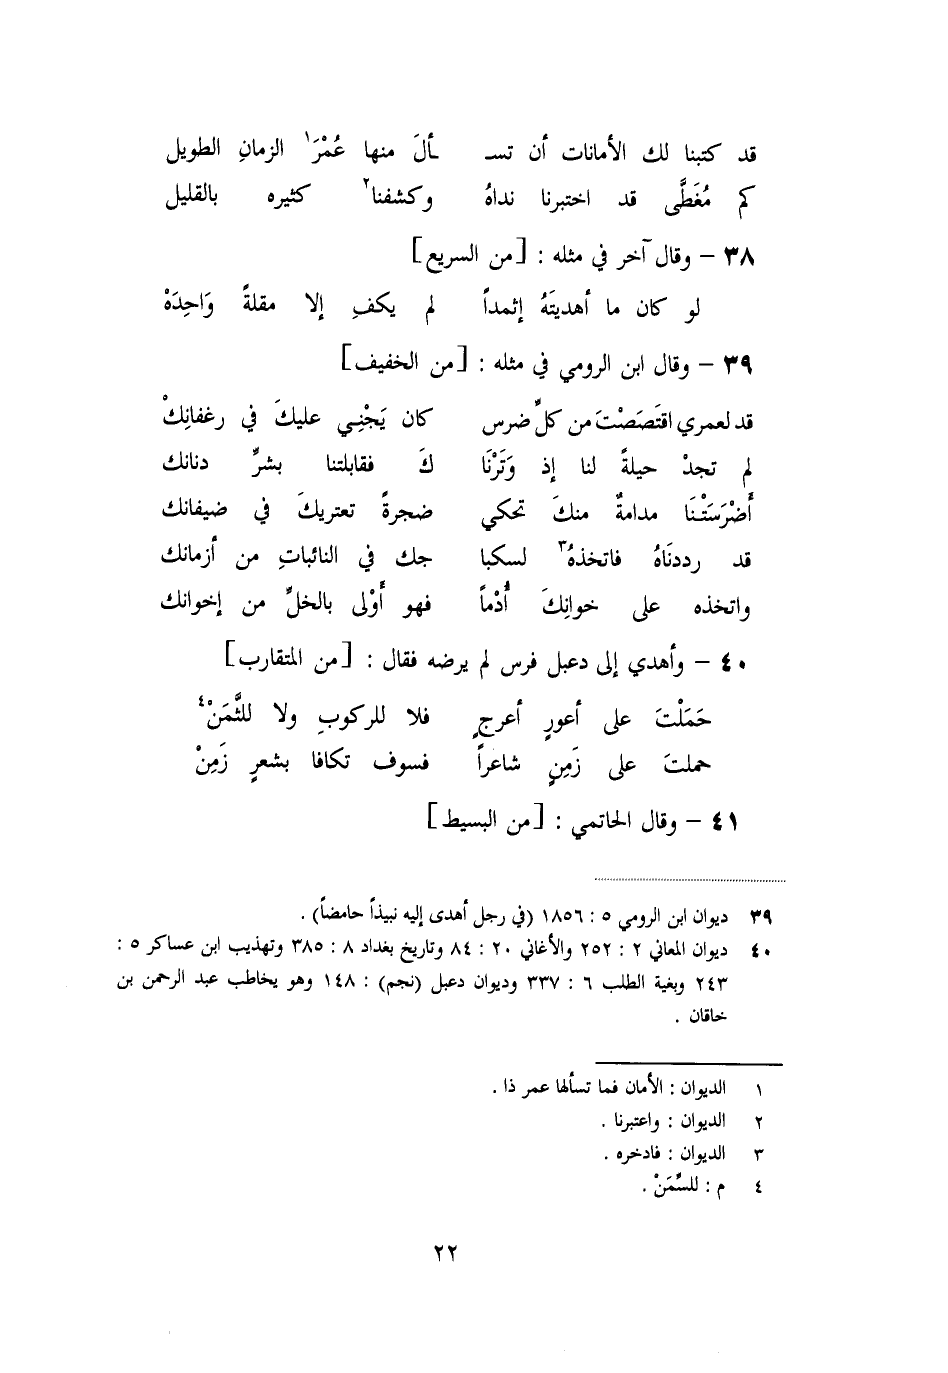 قد كتبنا لك الأمانات أن تسـ ـألَ منها عُمْرَ١ الزمانِ الطويل
كم مُغَطًّى قد اختبرنا نداهُ وكشفنا٢ كثيره بالقليل
٣٨ – وقال آخر في مثله : [من السريع]
لو كان ما أهديتَهُ إثمداً لم يكفِ إلا مقلةً وَاحِدَهْ
٣٩ – وقال ابن الرومي في مثله : [من الخفيف]
قد لعمري اقتَصَصْتَ من كلِّ ضرس كان يَجْنِي عليكَ في رغفانِكْ
لم تجدْ حيلةً لنا إذ وَتَرْنَا كَ فقابلتنا بشرِّ دنانك
أَضْرَسَتْنَا مدامةٌ منكَ تحكي ضجرةً تعتريكَ في ضيفانك
قد رددنَاهُ فاتخذهُ٣ لسكبا جك في النائباتِ من أزمانك
واتخذه على خوانِكَ أُدْماً فهو أَوْلى بالخلِّ من إخوانك
٤٠ – وأهدي إلى دعبل فرس لم يرضه فقال : [من المتقارب]
حَمَلْتَ على أعورٍ أعرجٍ فلا للركوبِ ولا للثَّمَنْ٤
حملتَ على زَمِنٍ شاعراً فسوف تكافا بشعرٍ زَمِنْ
٤١ – وقال الحاتمي : [من البسيط]
٣٩ ديوان ابن الرومي ٥ : ١٨٥٦ (في رجل أهدى إليه نبيذاً حامضاً) .
٤٠ ديوان المعاني ٢ : ٢٥٢ والأغاني ٢٠ : ٨٤ وتاريخ بغداد ٨ : ٣٨٥ وتهذيب ابن عساكر ٥ :
٢٤٣ وبغية الطلب ٦ : ٣٣٧ وديوان دعبل (نجم) : ١٤٨ وهو يخاطب عبد الرحمن بن
خاقان .
١ الديوان : الأمان فما تسألها عمر ذا .
٢ الديوان : واعتبرنا .
٣ الديوان : فادخره .
٤ م : للسِّمَنْ .
٢٢